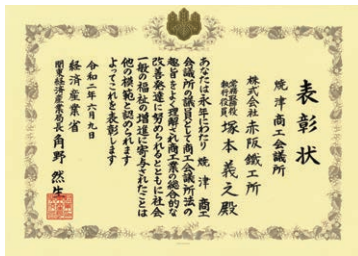 表彰状
焼津商工会議所
株式会社赤阪鐵工所
常務取締役
執行役員
塚本義之殿
あなたは永年にわたり焼津商工
会議所の議員として商工会議所法の
趣旨をよく理解され商工業の総合的な
改善発達に努められるとともに社会
一般の福祉の増進に寄与されたことは
他の模範と認められます
よってこれを表彰します
令和二年六月九日
経済産業省
関東経済産業局長 角野然生